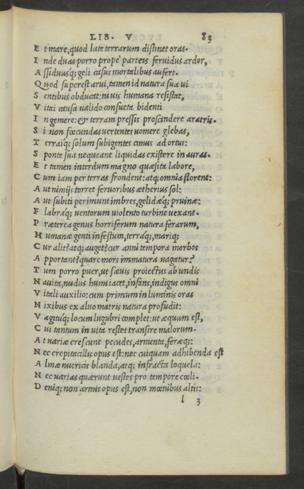 LIB. V 83
E t mare, quod late terrarum distinet oras.
I nde duas porro propé parteis feruidus ardor,
A ssiduusq; geli casus mortalibus aufert.
Q uod superest arui, tamen id natura sua ui
S entibus obducat: ni uis humana resistat,
V itai causa ualido consueta bidenti
I ngemere: et terram pressis proscindere aratris.
S i non fœcundas uertentes uomere glebas,
T erraiq; solum subigentes cimus ad ortus:
S ponte sua nequeant liquidas existere in auras.
E t tamen interdum magno quæsita labore,
C um iam per terras frondent: atq; omnia florent:
A ut nimijs torret feruoribus ætherius sol:
A ut subiti perimunt imbres, gelidæq; pruinæ:
F labraq; uentorum uiolento turbine uexant.
P ræterea genus horriferum natura ferarum,
H umanæ genti infestum, terraq; mariq;
C ur alit? atq; auget? cur anni tempora morbos
A pportant? quare mors immatura uagatur?
T um porro puer, ut sæuis proiectus ab undis
N auita, nudus humi iacet, infans, indigus omni
V itali auxilio: cum primum in luminis oras
N ixibus ex aluo matris natura profudit:
V agituq; locum lugubri complet: ut æquum est,
C ui tantum in uita restet transire malorum.
A t uariæ crescunt pecudes, armenta, feræq;:
N ec crepitacillis opus est: nec cuiquam adhibenda est
A lmæ nutricis blanda, atq; infracta loquela:
N ec uarias quærunt uestes pro tempore cœli.
D eniq; non armis opus est, non mœnibus altis:
l 3